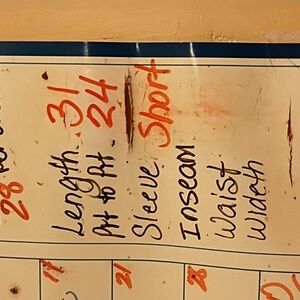 28
Length . 31
Pit to Pit . 24
Sleeve Short
Inseam
Waist
Wideth
14
21
28